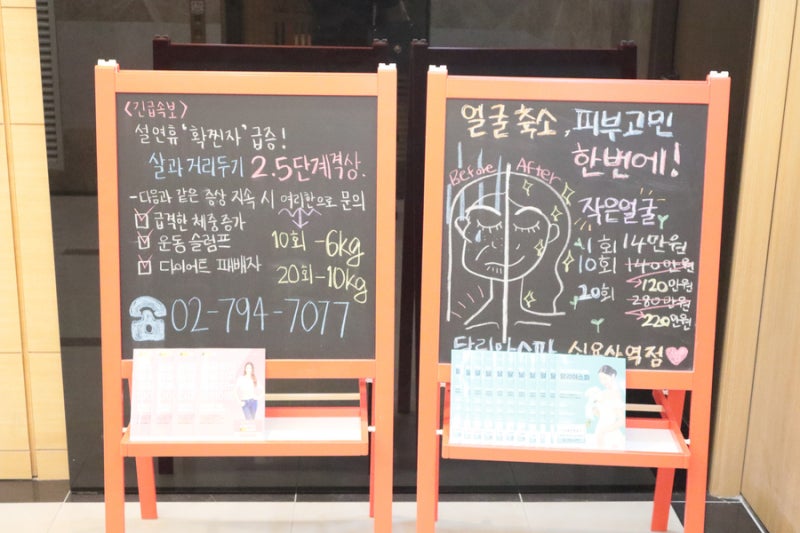 <긴급속보>
설연휴 '확찐자' 급증!
살과 거리두기 2.5단계격상.
-다음과 같은 증상 지속 시 여리한으로 문의
급격한 체중증가
운동 슬럼프
다이어트 패배자
10회 -6kg
20회 -10kg
02-794-7077
얼굴축소, 피부고민
한번에!
Before After
작은얼굴
1회 14만원
10회 140만원
120만원
20회 280만원
220만원
신용산역점